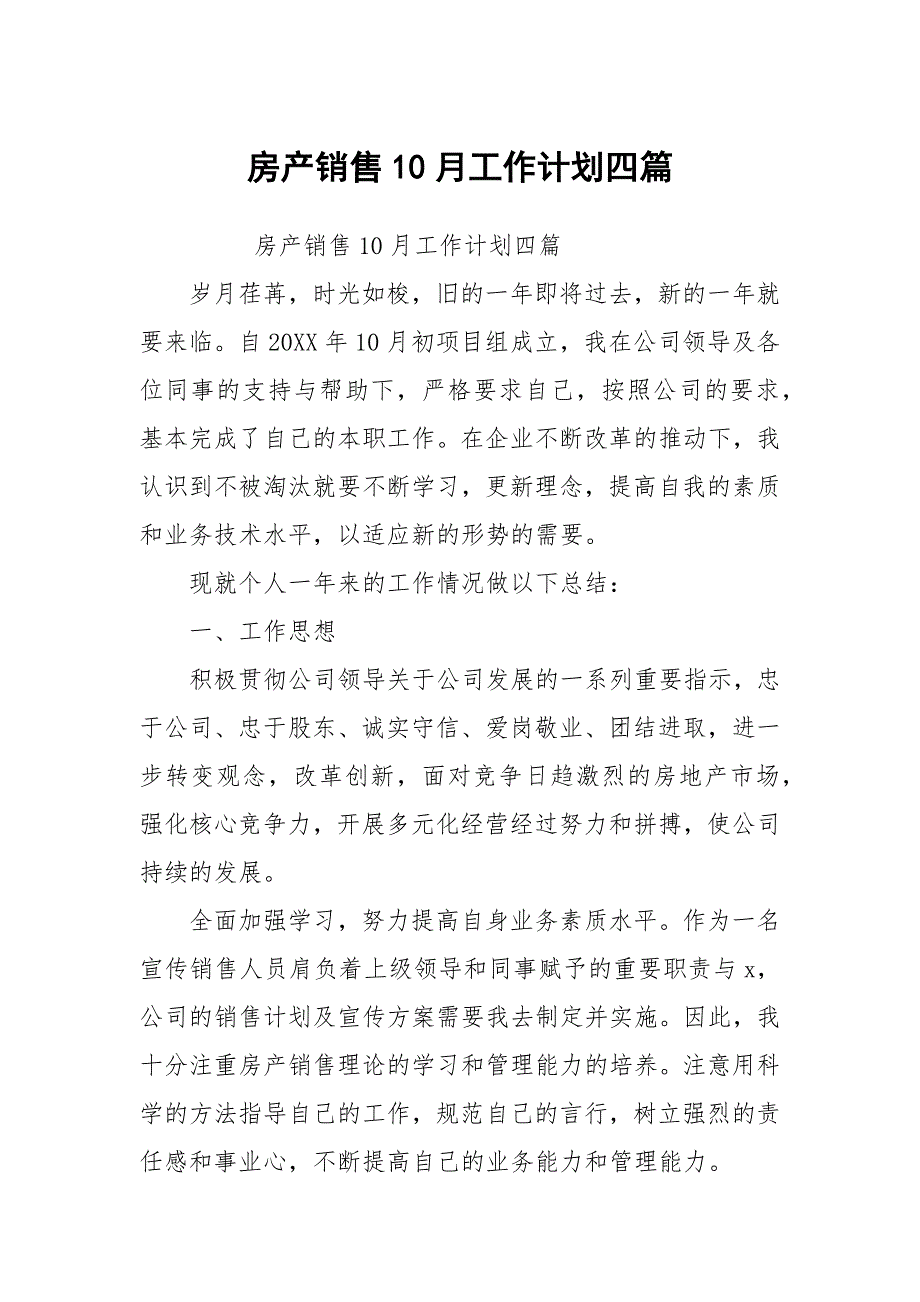 房产销售10月工作计划四篇
房产销售10月工作计划四篇
岁月荏苒，时光如梭，旧的一年即将过去，新的一年就
要来临。自20XX年10月初项目组成立，我在公司领导及各
位同事的支持与帮助下，严格要求自己，按照公司的要求，
基本完成了自己的本职工作。在企业不断改革的推动下，我
认识到不被淘汰就要不断学习，更新理念，提高自我的素质
和业务技术水平，以适应新的形势的需要。
现就个人一年来的工作情况做以下总结：
一、工作思想
积极贯彻公司领导关于公司发展的一系列重要指示，忠
于公司、忠于股东、诚实守信、爱岗敬业、团结进取，进一
步转变观念，改革创新，面对竞争日趋激烈的房地产市场，
强化核心竞争力，开展多元化经营经过努力和拼搏，使公司
持续的发展。
全面加强学习，努力提高自身业务素质水平。作为一名
宣传销售人员肩负着上级领导和同事赋予的重要职责与x，
公司的销售计划及宣传方案需要我去制定并实施。因此，我
十分注重房产销售理论的学习和管理能力的培养。注意用科
学的方法指导自己的工作，规范自己的言行，树立强烈的责
任感和事业心，不断提高自己的业务能力和管理能力。